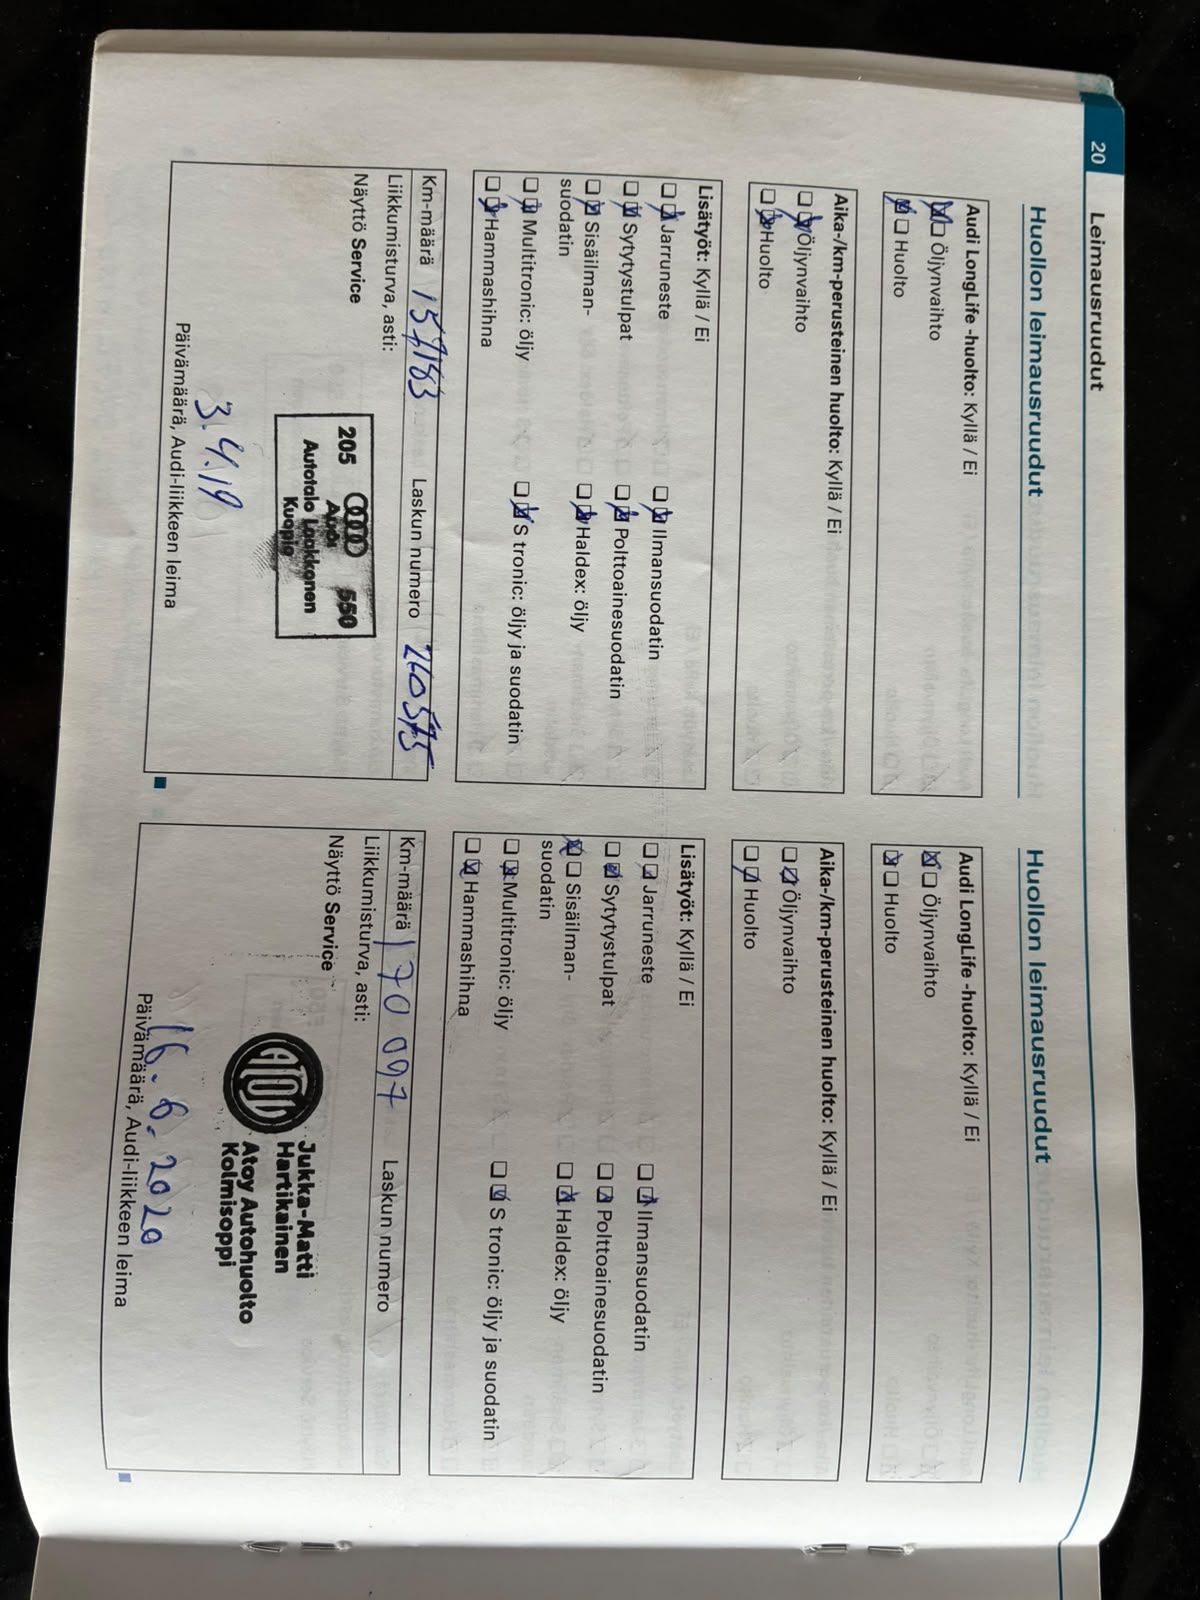 20 Leimausruudut
Huollon leimausruudut
Audi LongLife -huolto: Kyllä / Ei
☒ ☐ Öljynvaihto
☒ ☐ Huolto
Aika-/km-perusteinen huolto: Kyllä / Ei
☐ ☒ Öljynvaihto
☐ ☒ Huolto
Lisätyöt: Kyllä / Ei
☐ ☒ Jarruneste
☐ ☒ Sytytystulpat
☐ ☒ Sisäilman-
suodatin
☐ ☒ Multitronic: öljy
☐ ☒ Hammashihna
☐ ☒ Ilmansuodatin
☐ ☒ Polttoainesuodatin
☐ ☒ Haldex: öljy
☐ ☒ S tronic: öljy ja suodatin
Km-määrä 157183 Laskun numero 260575
Liikkumisturva, asti:
Näyttö Service
205 550
Audi
Autotalo Laakkonen
Kuopio
3.4.19
Päivämäärä, Audi-liikkeen leima
Huollon leimausruudut
Audi LongLife -huolto: Kyllä / Ei
☒ ☐ Öljynvaihto
☒ ☐ Huolto
Aika-/km-perusteinen huolto: Kyllä / Ei
☐ ☒ Öljynvaihto
☐ ☒ Huolto
Lisätyöt: Kyllä / Ei
☐ ☒ Jarruneste
☐ ☒ Sytytystulpat
☒ ☐ Sisäilman-
suodatin
☐ ☒ Multitronic: öljy
☐ ☒ Hammashihna
☐ ☒ Ilmansuodatin
☐ ☒ Polttoainesuodatin
☐ ☒ Haldex: öljy
☐ ☒ S tronic: öljy ja suodatin
Km-määrä 170 097 Laskun numero
Liikkumisturva, asti:
Näyttö Service
ATOY
Jukka-Matti
Hartikainen
Atoy Autohuolto
Kolmisoppi
16.6.2020
Päivämäärä, Audi-liikkeen leima